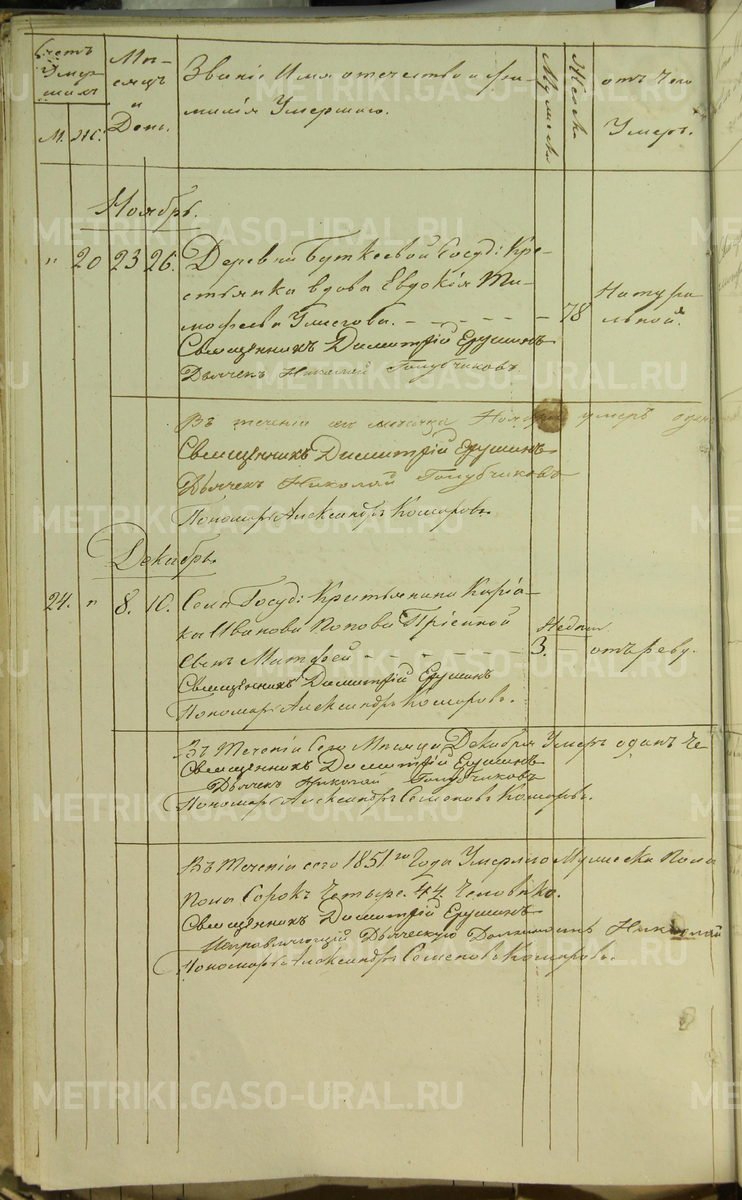 Счетъ Умершихъ
М. Ж.
Месяцъ и День.
Званіе Имя отечество и фамилія Умершаго.
Мужеска
Женска
отъ чего Умеръ.
Ноябрь.
" 20 23 26. Деревни Буткеевой Госуд: Кре-
стьянка вдова Евдокія Ти-
мофеева - - - - - - 78 Натура
льной.
Священникъ Димитрій Ерушинъ
Дьячекъ Николай Голубчиковъ.
Въ теченіи месяца Ноября умеръ
Священникъ Димитрій Ерушинъ
Дьячекъ Николай Голубчиковъ
Пономарь Александръ Комаровъ.
Декабрь.
24. " 8. 10. Села Госуд: Крестьянина Киріа-
ка Иванова Попова
сынъ Матфей - - - - - - 3. Недели отъ реву.
Священникъ Димитрій Ерушинъ
Пономарь Александръ Комаровъ.
Въ Теченіи Сего Месяца Декабря Умеръ одинъ че
Священникъ Димитрій Ерушинъ
Дьячекъ Николай Голубчиковъ
Пономарь Александръ Семеновъ Комаровъ.
Въ Теченіи сего 1851го Года Умерло Мужеска Пола
пола Сорокъ Четыре. 44. Человѣка.
Священникъ Димитрій Ерушинъ
Исправляющій Дьяческую Должность Николай
Пономарь Александръ Семеновъ Комаровъ.
METRIKI.GASO-URAL.RU